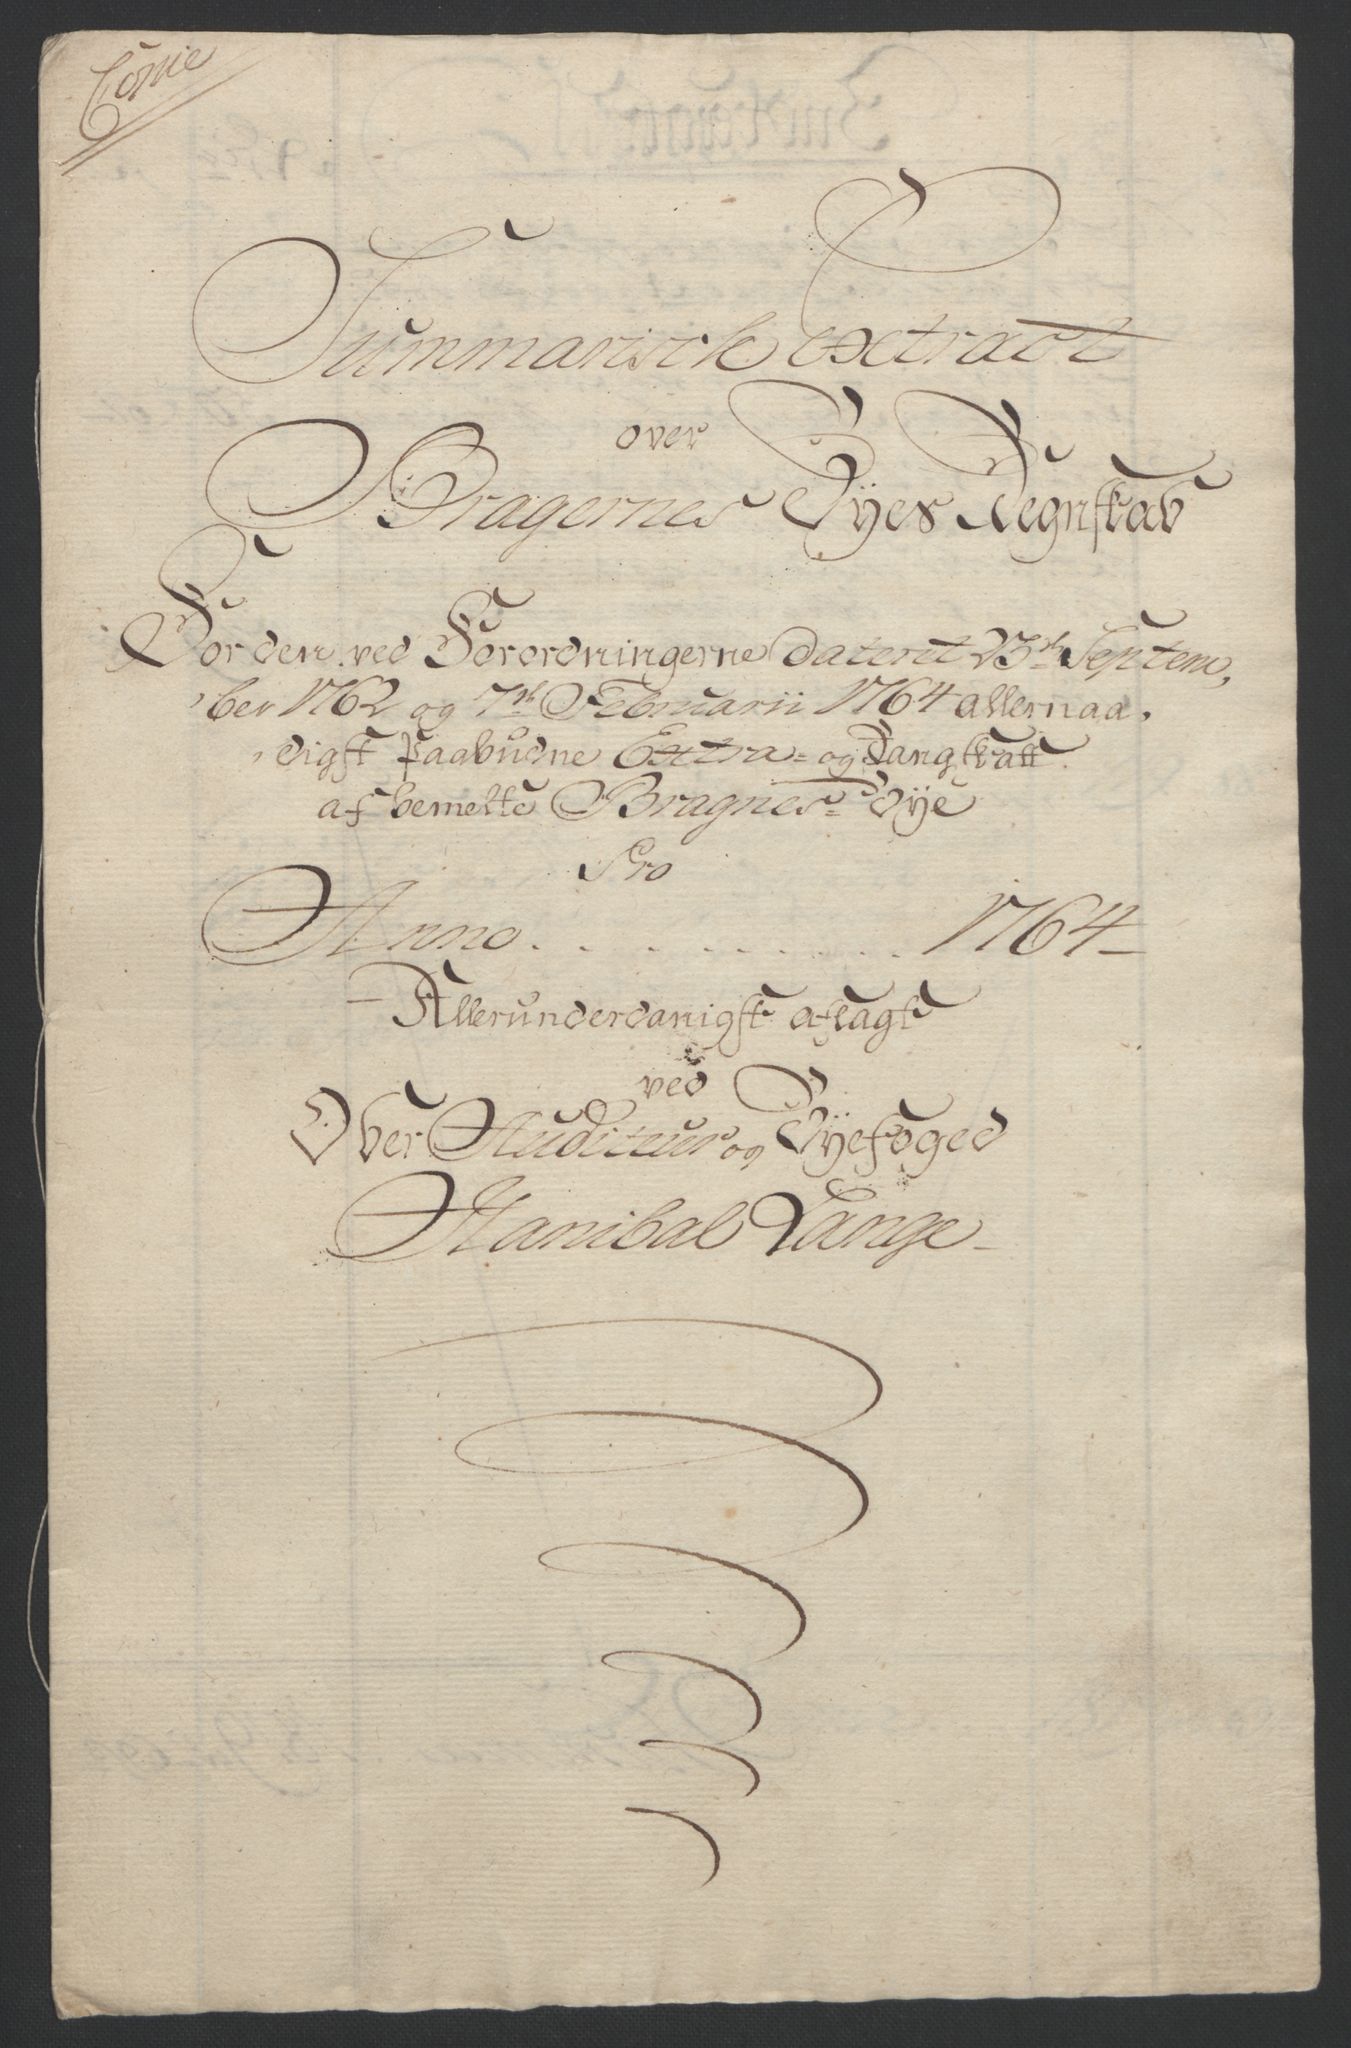 Copie
Summarisck Extract
over
Bragernes Byes Regnskab
For den ved Forordningerne daterit 23de Septem,
ber 1762 og 7de Februarii 1764 allernaa,
digst paabudne Extra= og Rangskatt
af bemelte Bragnes= Bye
Pro
Anno . . . . . . . . . . 1764 –
Allerunderdanigst aflagt
ved
Over Auditeur og Byefoged
Hanibal Lange –